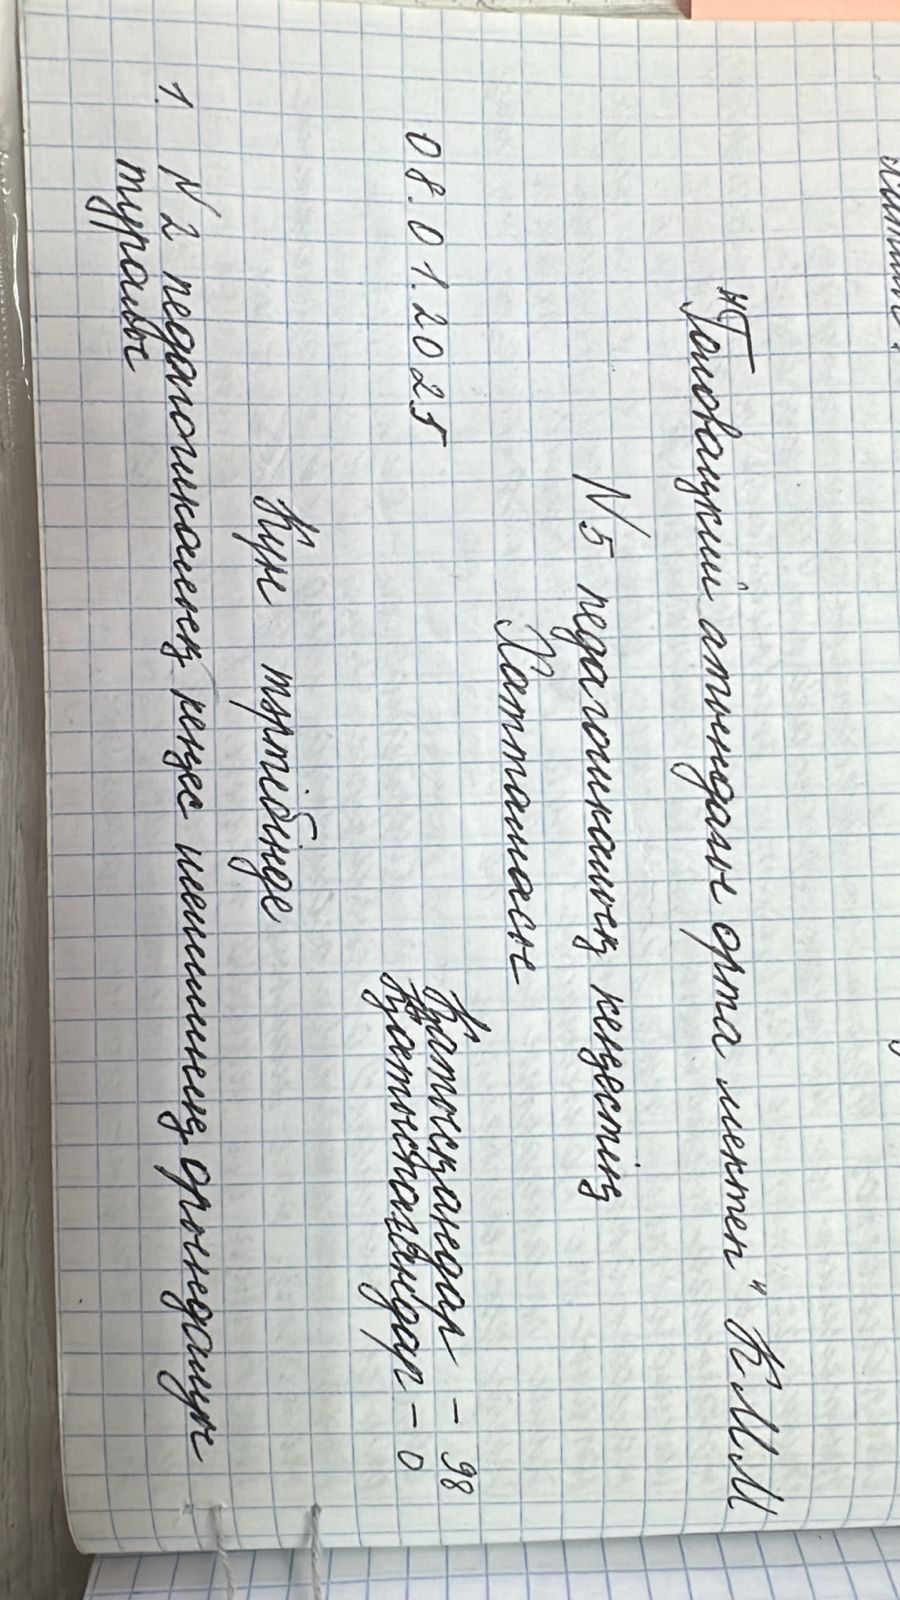 "Головацкий атындағы орта мектеп" КММ
N 5 педагогикалық кеңестің
Хаттамасы
08.01.2025
Қатысқандар – 98
Қатыспағандар – 0
Күн тәртібінде
1. N 2 педагогикалық кеңес шешімінің орындалуы
туралы